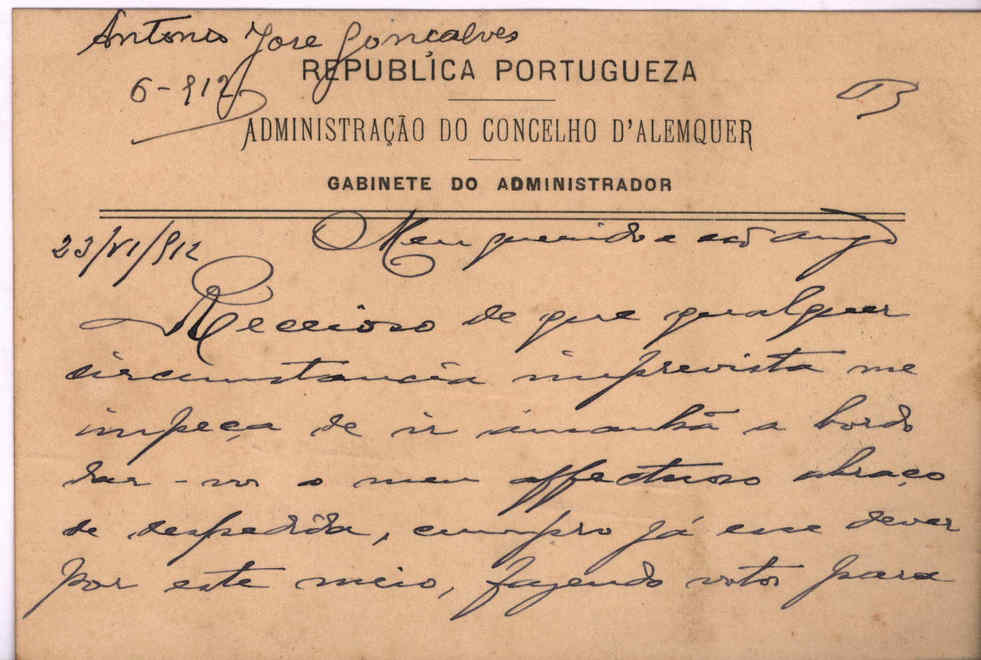 Antonio Jose Gonçalves
6-912
REPUBLICA PORTUGUEZA
ADMINISTRAÇÃO DO CONCELHO D'ALEMQUER
GABINETE DO ADMINISTRADOR
23/VI/912
Meu querido e amigo
Receioso de que qualquer
circumstancia imprevista me
impeça de ir ámanhã a bordo
dar-vos o meu affectuoso abraço
de despedida, cumpro já esse dever
por este meio, fazendo votos para